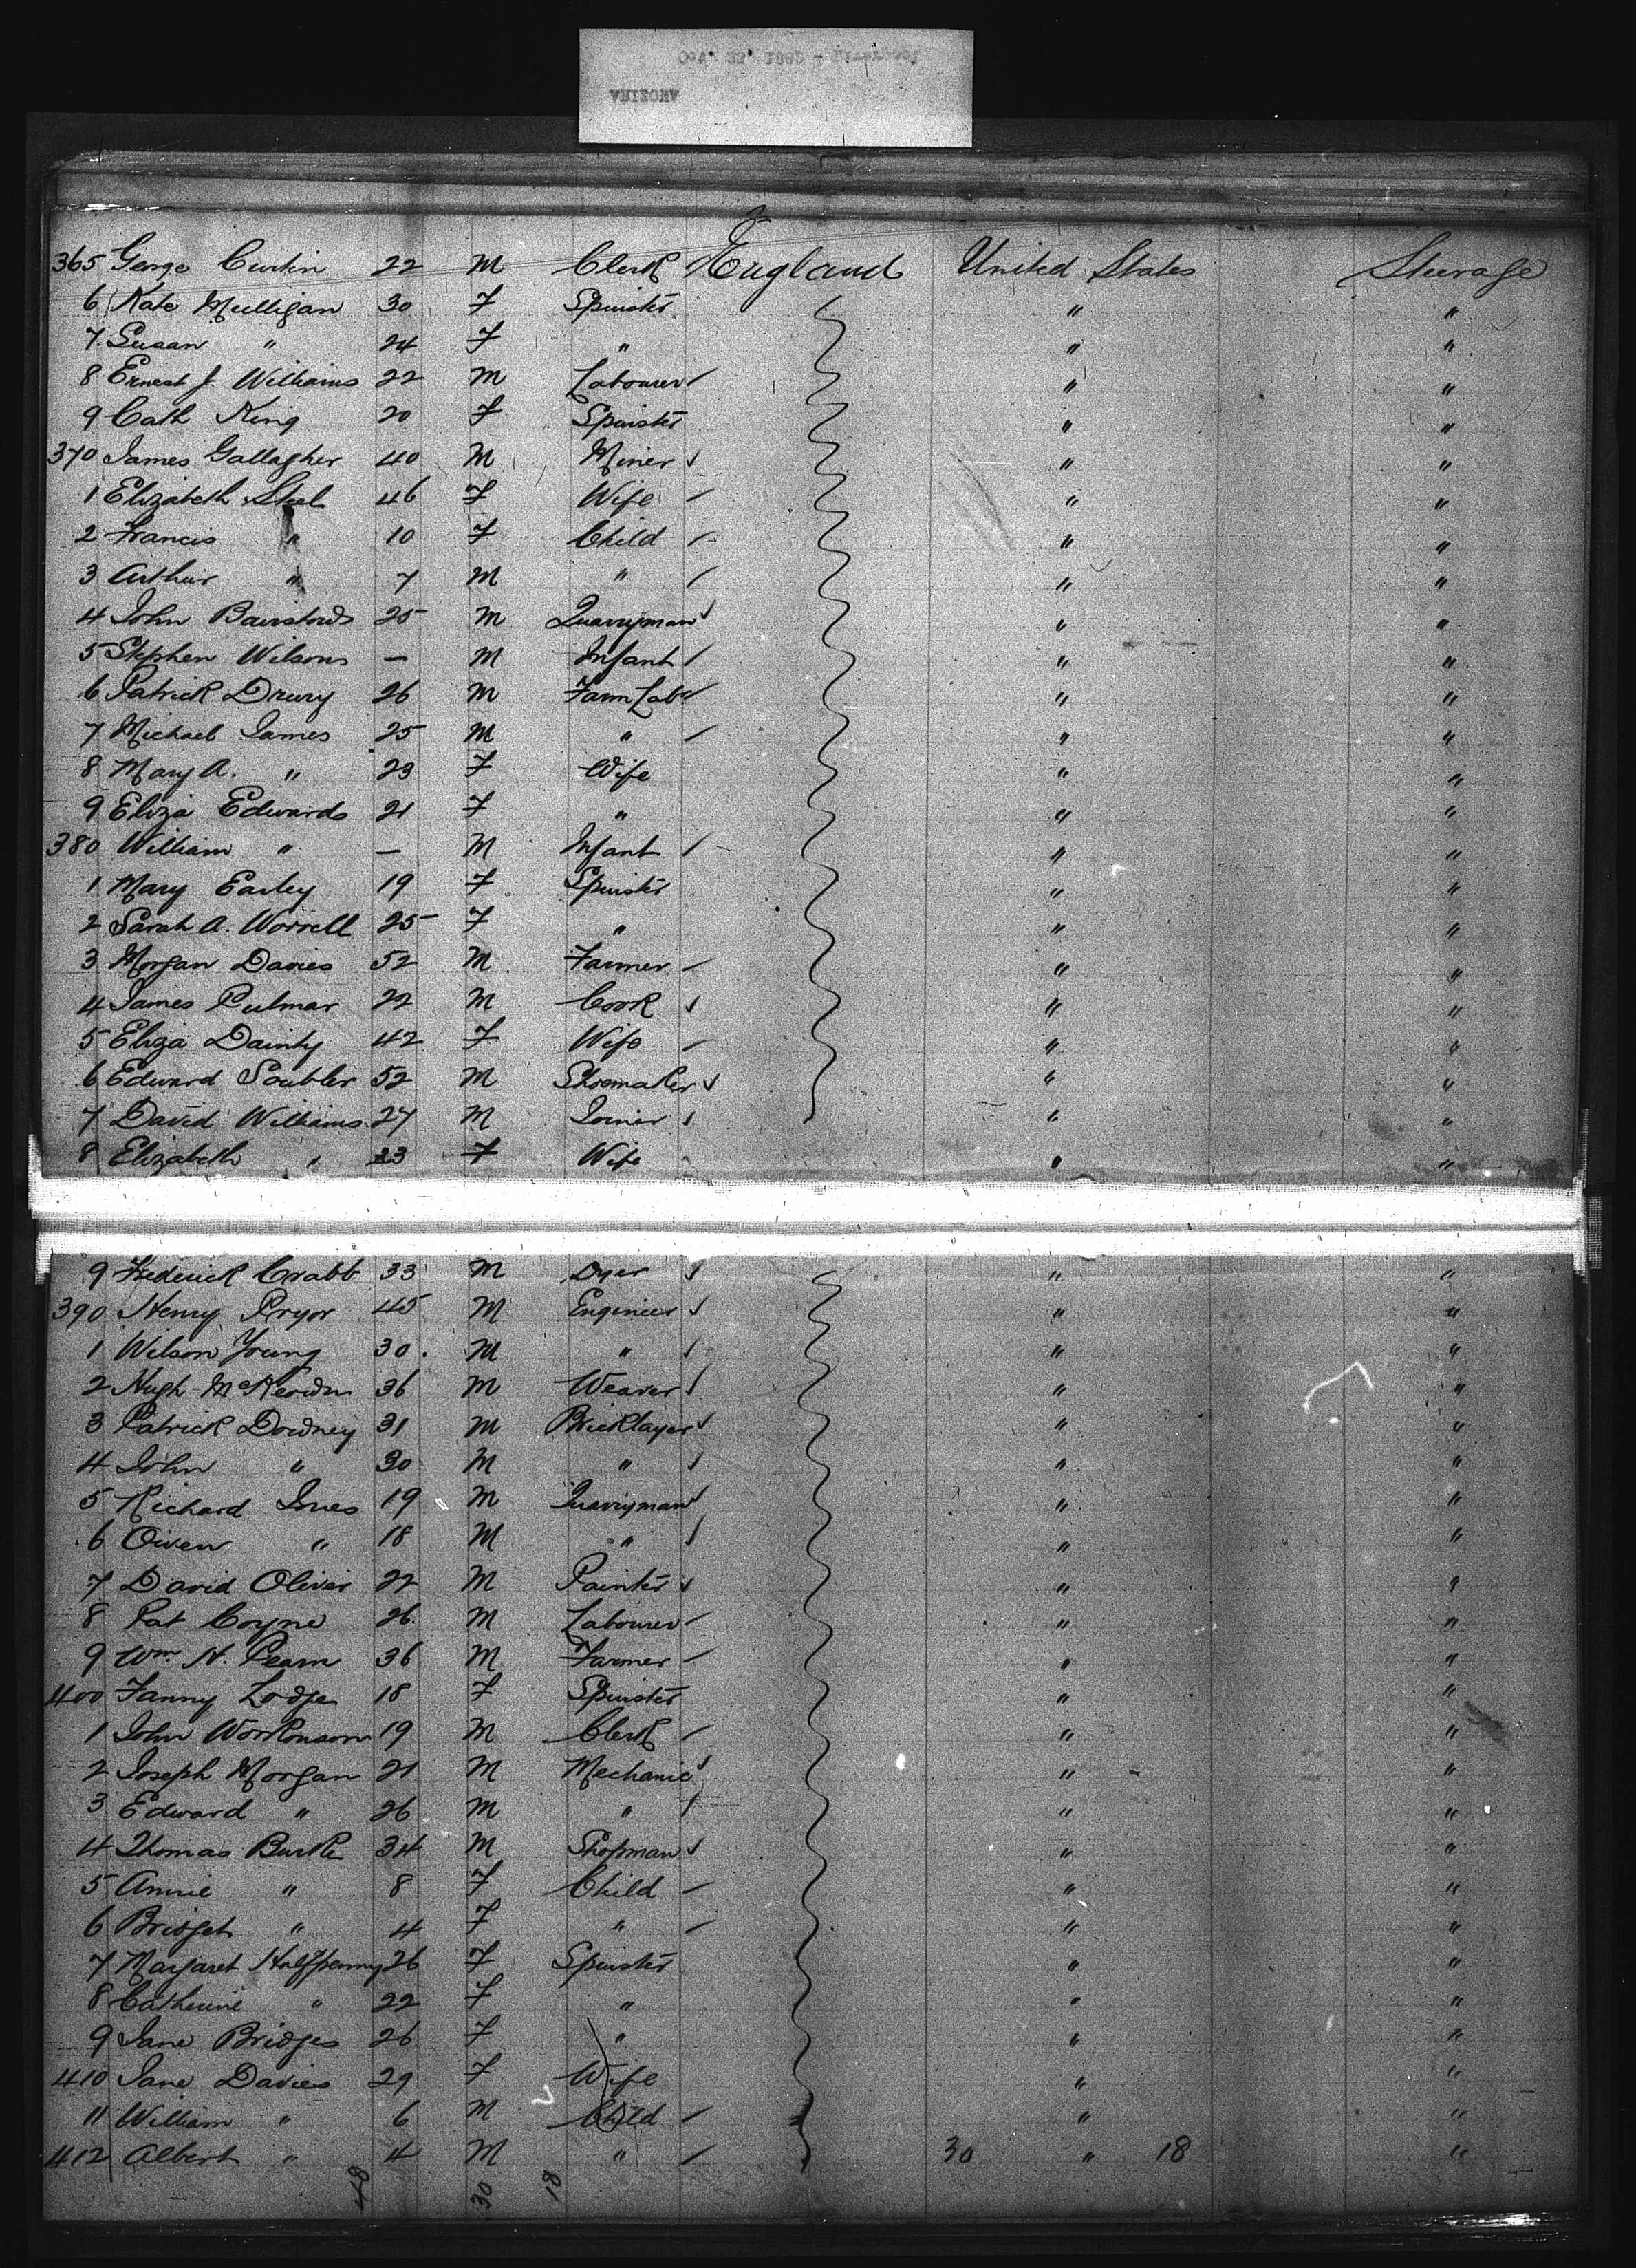 ARIZONA
365 George Curtin 22 M Clerk England United States Steerage
6 Kate Mulligan 30 F Spinster " "
7 Susan " 24 F " " "
8 Ernest J. Williams 22 M Labourer " "
9 Cath King 20 F Spinster " "
370 James Gallagher 40 M Miner " "
1 Elizabeth Steel 46 F Wife " "
2 Francis " 10 F Child " "
3 Arthur " 7 M " " "
4 John 25 M Quarryman " "
5 Stephen Wilson — M Infant " "
6 Patrick Drury 26 M Farm Labr " "
7 Michael James 25 M " " "
8 Mary A. " 23 F Wife " "
9 Eliza Edwards 21 F " " "
380 William " — M Infant " "
1 Mary Earley 19 F Spinster " "
2 Sarah A. Worrell 25 F " " "
3 Morgan Davies 52 M Farmer " "
4 James Pulmar 22 M Cook " "
5 Eliza Dainty 42 F Wife " "
6 Edward 52 M Shoemaker " "
7 David Williams 27 M Joiner " "
8 Elizabeth " 23 F Wife " "
9 Frederick Crabb 33 M Dyer " "
390 Henry Pryor 45 M Engineer " "
1 Wilson Young 30. M " " "
2 Hugh McKeown 36 M Weaver " "
3 Patrick Downey 31 M Bricklayer " "
4 John " 30 M " " "
5 Richard 19 M Quarryman " "
6 Owen " 18 M " " "
7 David Oliver 22 M Painter " "
8 Pat Coyne 26 M Labourer " "
9 Wm. H. Pearn 36 M Farmer " "
400 Fanny Lodge 18 F Spinster " "
1 John 19 M Clerk " "
2 Joseph Morgan 21 M Mechanic " "
3 Edward " 26 M " " "
4 Thomas Burke 34 M Shopman " "
5 Annie " 8 F Child " "
6 Bridget " 4 F " " "
7 Margaret Halfpenny 26 F Spinster " "
8 Catherine " 22 F " " "
9 Jane Bridges 26 F " " "
410 Jane Davies 29 F Wife " "
11 William " 6 M Child " "
412 Albert " 4 M " 30 " 18 "
48 30 18